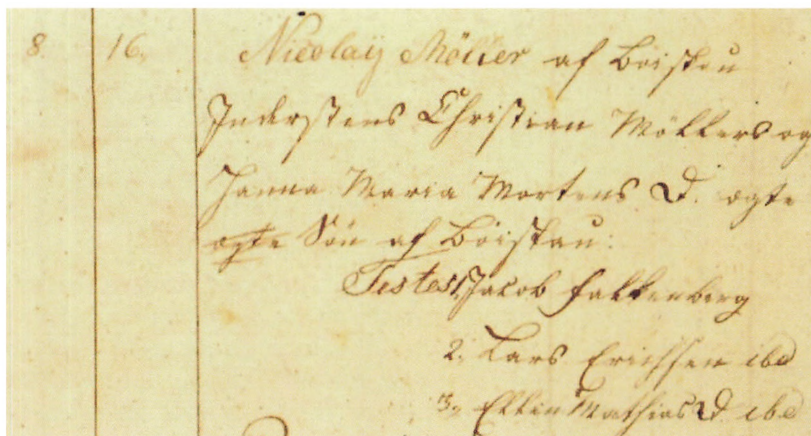 8. 16. Nicolaÿ Möller af Böistau
Inderstens Christian Möllers og
Hanna Maria Mortens D. ægte
ægte Sön af Böistau:
Testes 1, Jacob Falkenberg
2, Lars Erichsen ibd
3, Ellin Mathias D. ibd